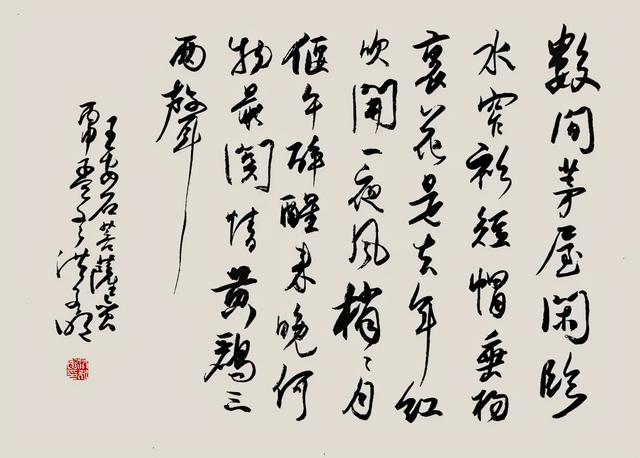 數間茅屋閑臨
水窄衫短帽垂楊
裏花是去年紅
吹開一夜風梢〻月
偃午醉醒來晚何
物最関情黄鸝三
兩聲
王安石菩薩蠻